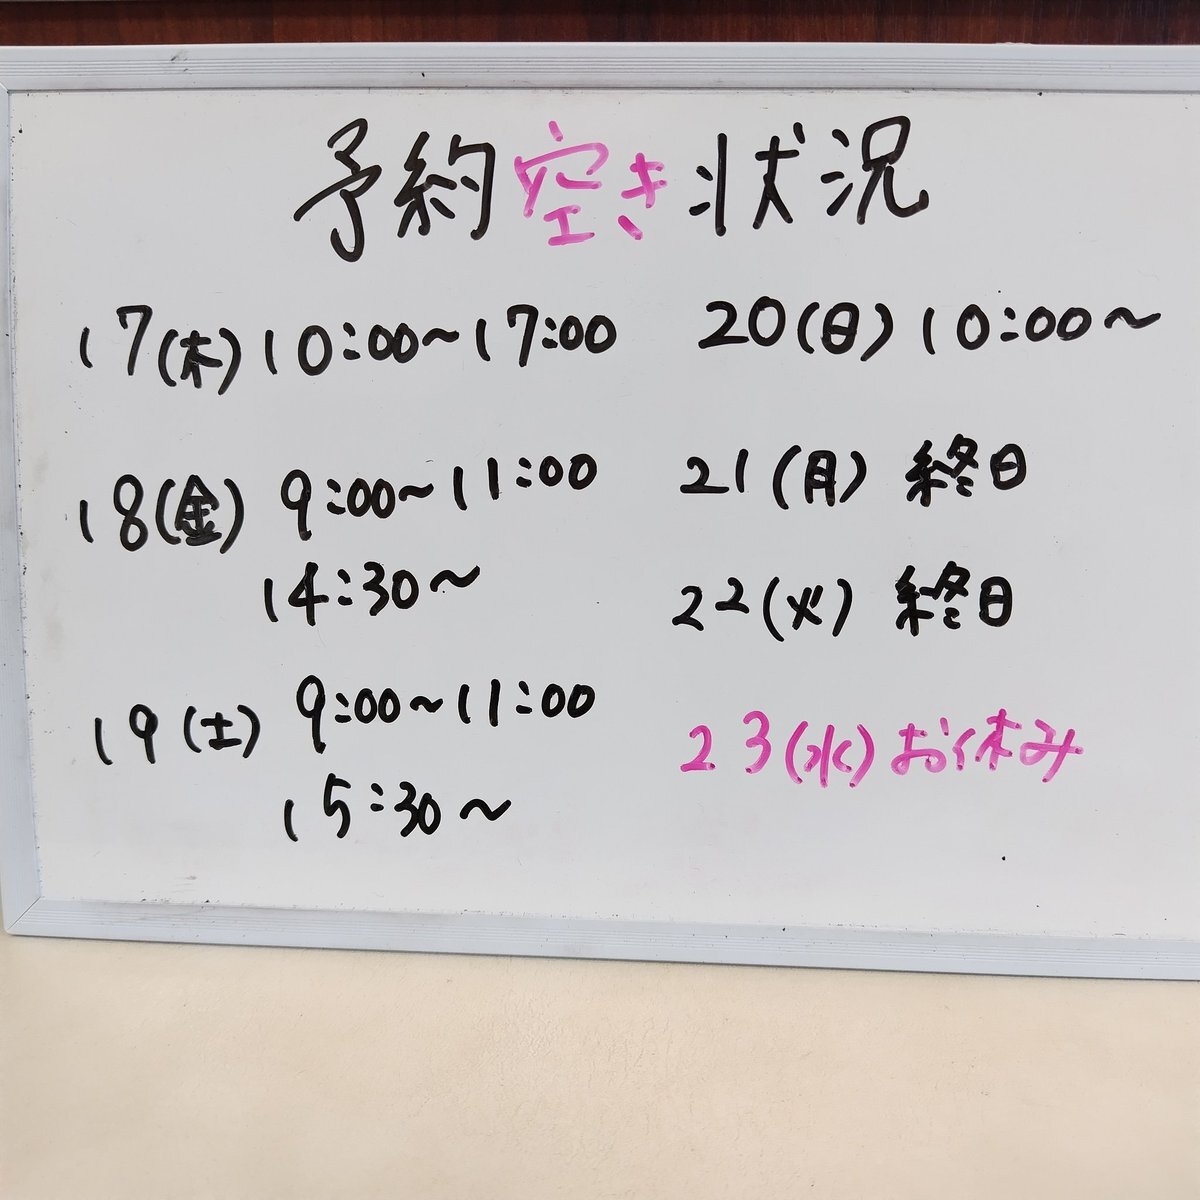 予約空き状況
17(木) 10:00~17:00
18(金) 9:00~11:00
14:30~
19(土) 9:00~11:00
15:30~
20(日) 10:00~
21(月) 終日
22(火) 終日
23(水) お休み